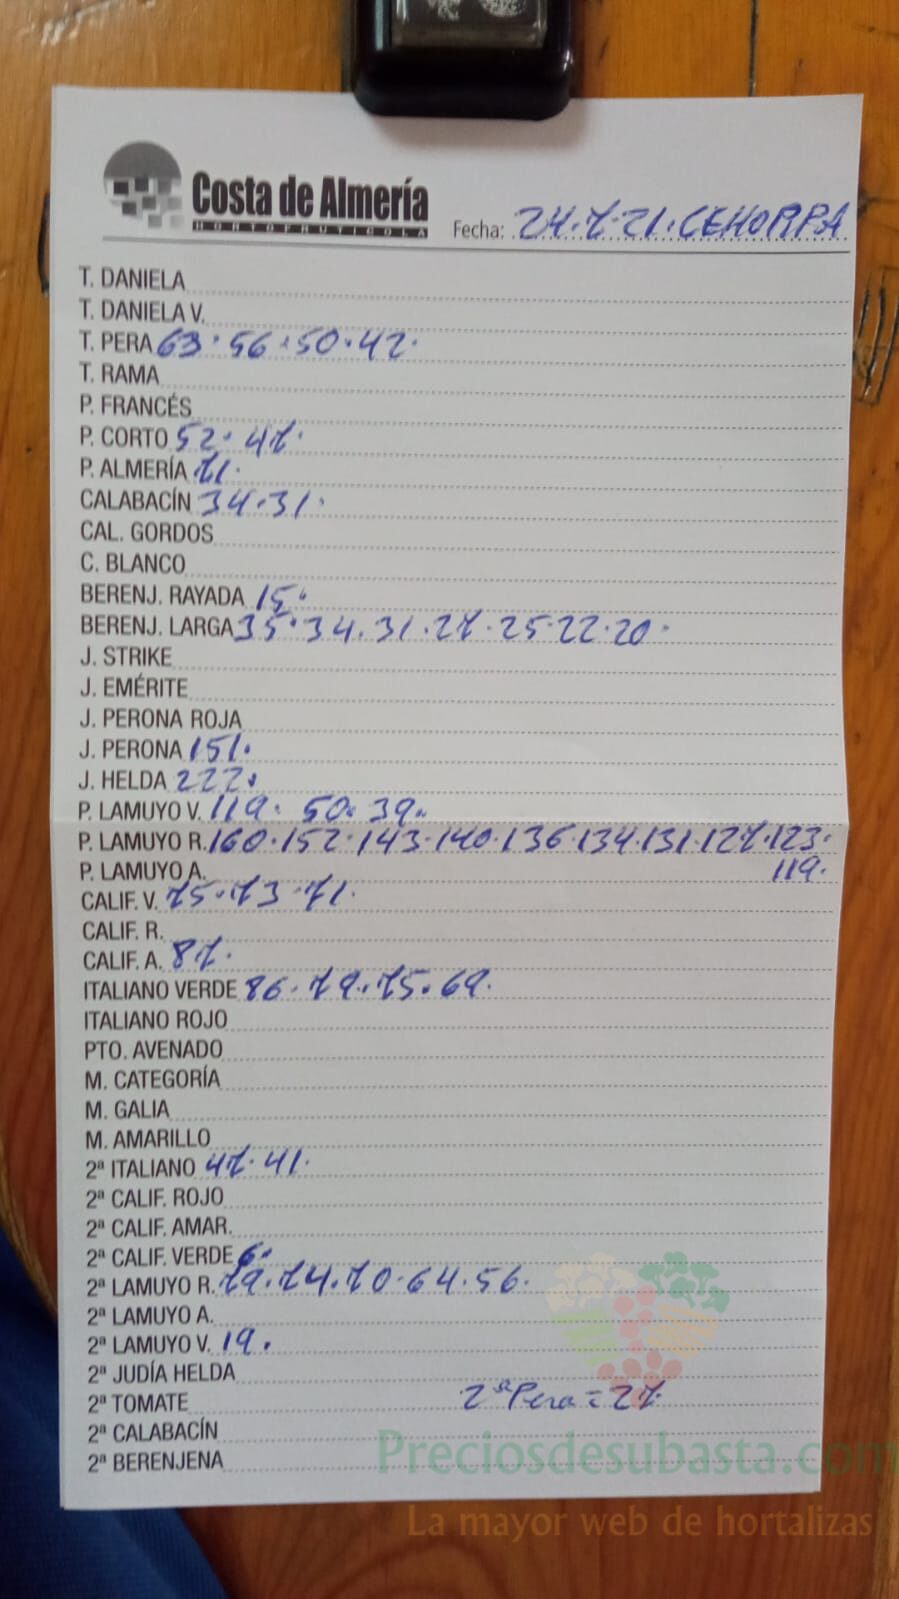 Costa de Almería
HORTOFRUTICOLA
Fecha: 24.7.21.CEHORPA
T. DANIELA
T. DANIELA V.
T. PERA 63.56.50.42.
T. RAMA
P. FRANCÉS
P. CORTO 52.47.
P. ALMERÍA 71.
CALABACÍN 34.31.
CAL. GORDOS
C. BLANCO
BERENJ. RAYADA 15.
BERENJ. LARGA 35.34.31.27.25.22.20.
J. STRIKE
J. EMÉRITE
J. PERONA ROJA
J. PERONA 151.
J. HELDA 222.
P. LAMUYO V. 119. 50. 39.
P. LAMUYO R. 160.152.143.140.136.134.131.127.123.
119.
P. LAMUYO A.
CALIF. V. 75.73.71.
CALIF. R.
CALIF. A. 87.
ITALIANO VERDE 86.79.75.69.
ITALIANO ROJO
PTO. AVENADO
M. CATEGORÍA
M. GALIA
M. AMARILLO
2ª ITALIANO 47.41.
2ª CALIF. ROJO
2ª CALIF. AMAR.
2ª CALIF. VERDE 6.
2ª LAMUYO R. 79.74.70.64.56.
2ª LAMUYO A.
2ª LAMUYO V. 19.
2ª JUDÍA HELDA
2ª TOMATE 2ª Pera = 27
2ª CALABACÍN
2ª BERENJENA
Preciosdesubasta.com
La mayor web de hortalizas